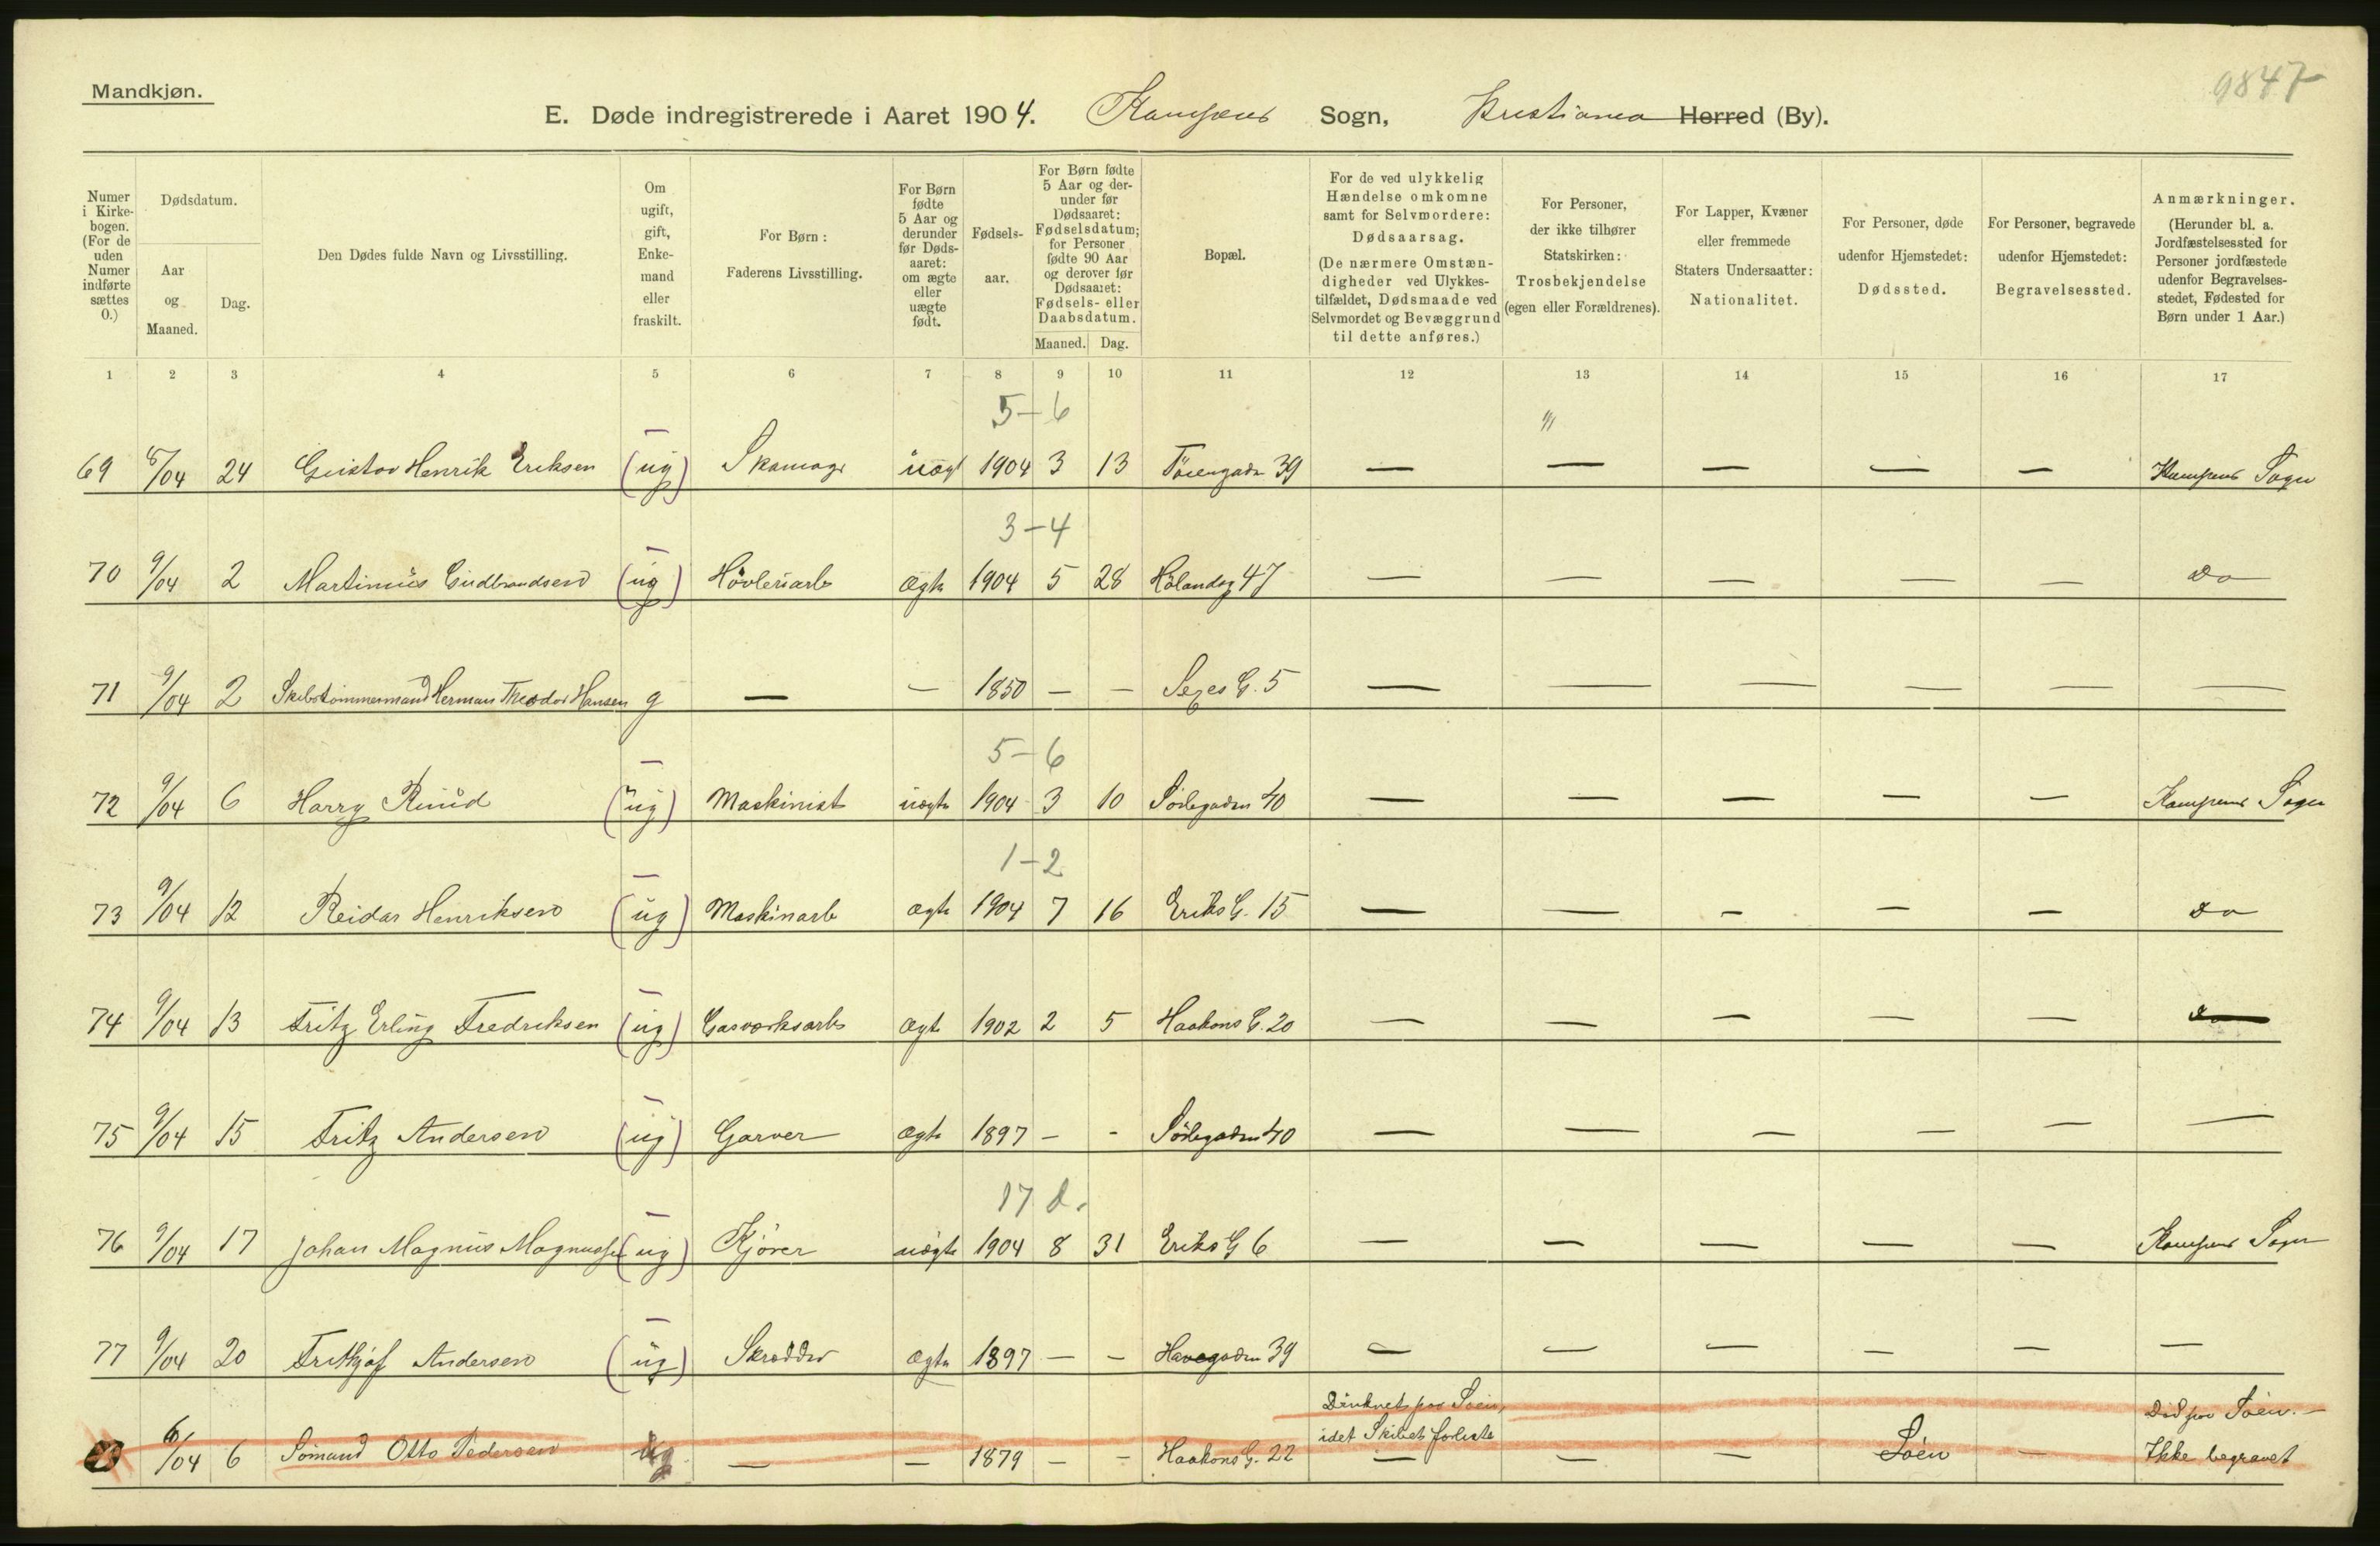 Mandkjøn.
9847
E. Døde indregistrerede i Aaret 1904. Kampens Sogn, Kristiania Herred (By).
Numer i Kirkebogen. (For de uden Numer indførte sættes 0.)
Dødsdatum.
Aar og Maaned.
Dag.
Den Dødes fulde Navn og Livsstilling.
Om ugift, gift, Enkemand eller fraskilt.
For Børn: Faderens Livsstilling.
For Børn fødte 5 Aar og derunder før Dødsaaret: om ægte eller uægte født.
Fødselsaar.
For Børn fødte 5 Aar og derunder før Dødsaaret: Fødselsdatum; for Personer fødte 90 Aar og derover før Dødsaaret: Fødsels- eller Daabsdatum.
Maaned. Dag.
Bopæl.
For de ved ulykkelig Hændelse omkomne samt for Selvmordere: Dødsaarsag. (De nærmere Omstændigheder ved Ulykkestilfældet, Dødsmaade ved Selvmordet og Bevæggrund til dette anføres.)
For Personer, der ikke tilhører Statskirken: Trosbekjendelse (egen eller Forældrenes).
For Lapper, Kvæner eller fremmede Staters Undersaatter: Nationalitet.
For Personer, døde udenfor Hjemstedet: Dødssted.
For Personer, begravede udenfor Hjemstedet: Begravelsessted.
Anmærkninger. (Herunder bl. a. Jordfæstelsessted for Personer jordfæstede udenfor Begravelsesstedet, Fødested for Børn under 1 Aar.)
1 2 3 4 5 6 7 8 9 10 11 12 13 14 15 16 17
5-6
69 8/04 24 Gustav Henrik Eriksen (ug) Skomagr uægt 1904 3 13 Töiengaden 39 — — — — — Kampens Sogn
3-4
70 9/04 2 Martinius Gudbrandsen (ug) Høvleriarb ægte 1904 5 28 Hölandsg 47 — — — — — Do
71 9/04 2 Skibstömmermand Herman Theodor Hansen g — — 1850 — — Seges G. 5 — — — — — —
5-6
72 9/04 6 Harry Ruud (ug) Maskinist uægte 1904 3 10 Sörlegaden 40 — — — — — Kampens Sogn
1-2
73 9/04 12 Reidar Henriksen (ug) Maskinarb ægte 1904 7 16 Eriks G. 15 — — — — — Do
74 9/04 13 Fritz Erling Fredriksen (ug) Gasværksarb ægt 1902 2 5 Haakons G. 20 — — — — — Do
75 9/04 15 Fritz Andersen (ug) Garver ægte 1897 — — Sörlegaden 40 — — — — — —
17 d.
76 9/04 17 Johan Magnus Magnussen (ug) Kjører uægte 1904 8 31 Eriks G 6 — — — — — Kampens Sogn
77 9/04 20 Frithjof Andersen (ug) Skrædder ægte 1897 — — Havegaden 39 — — — — — —
Druknet paa Söen, Död paa Söen. —
6/04 6 Sömand Otto Pedersen ug — — 1879 — — Haakons G. 22 idet Skibet forliste — — — Söen — Ikke begravet